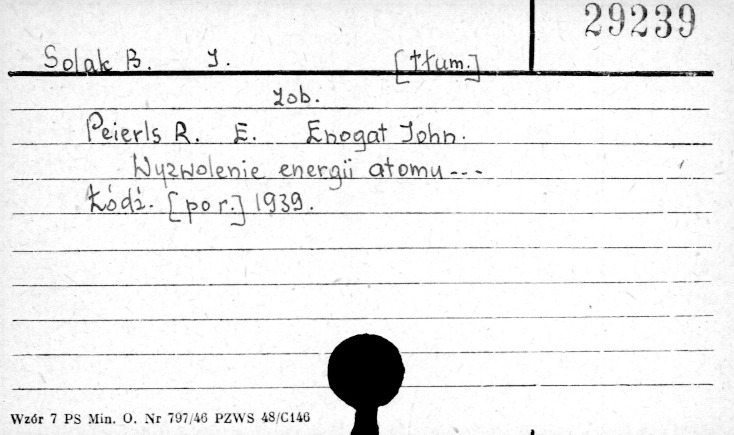 29239
Solak B. J. [tłum.]
zob.
Peierls R. E. Enogat John.
Wyzwolenie energii atomu---
Łódź. [por.] 1939.
Wzór 7 PS Min. O. Nr 797/46 PZWS 48/C146